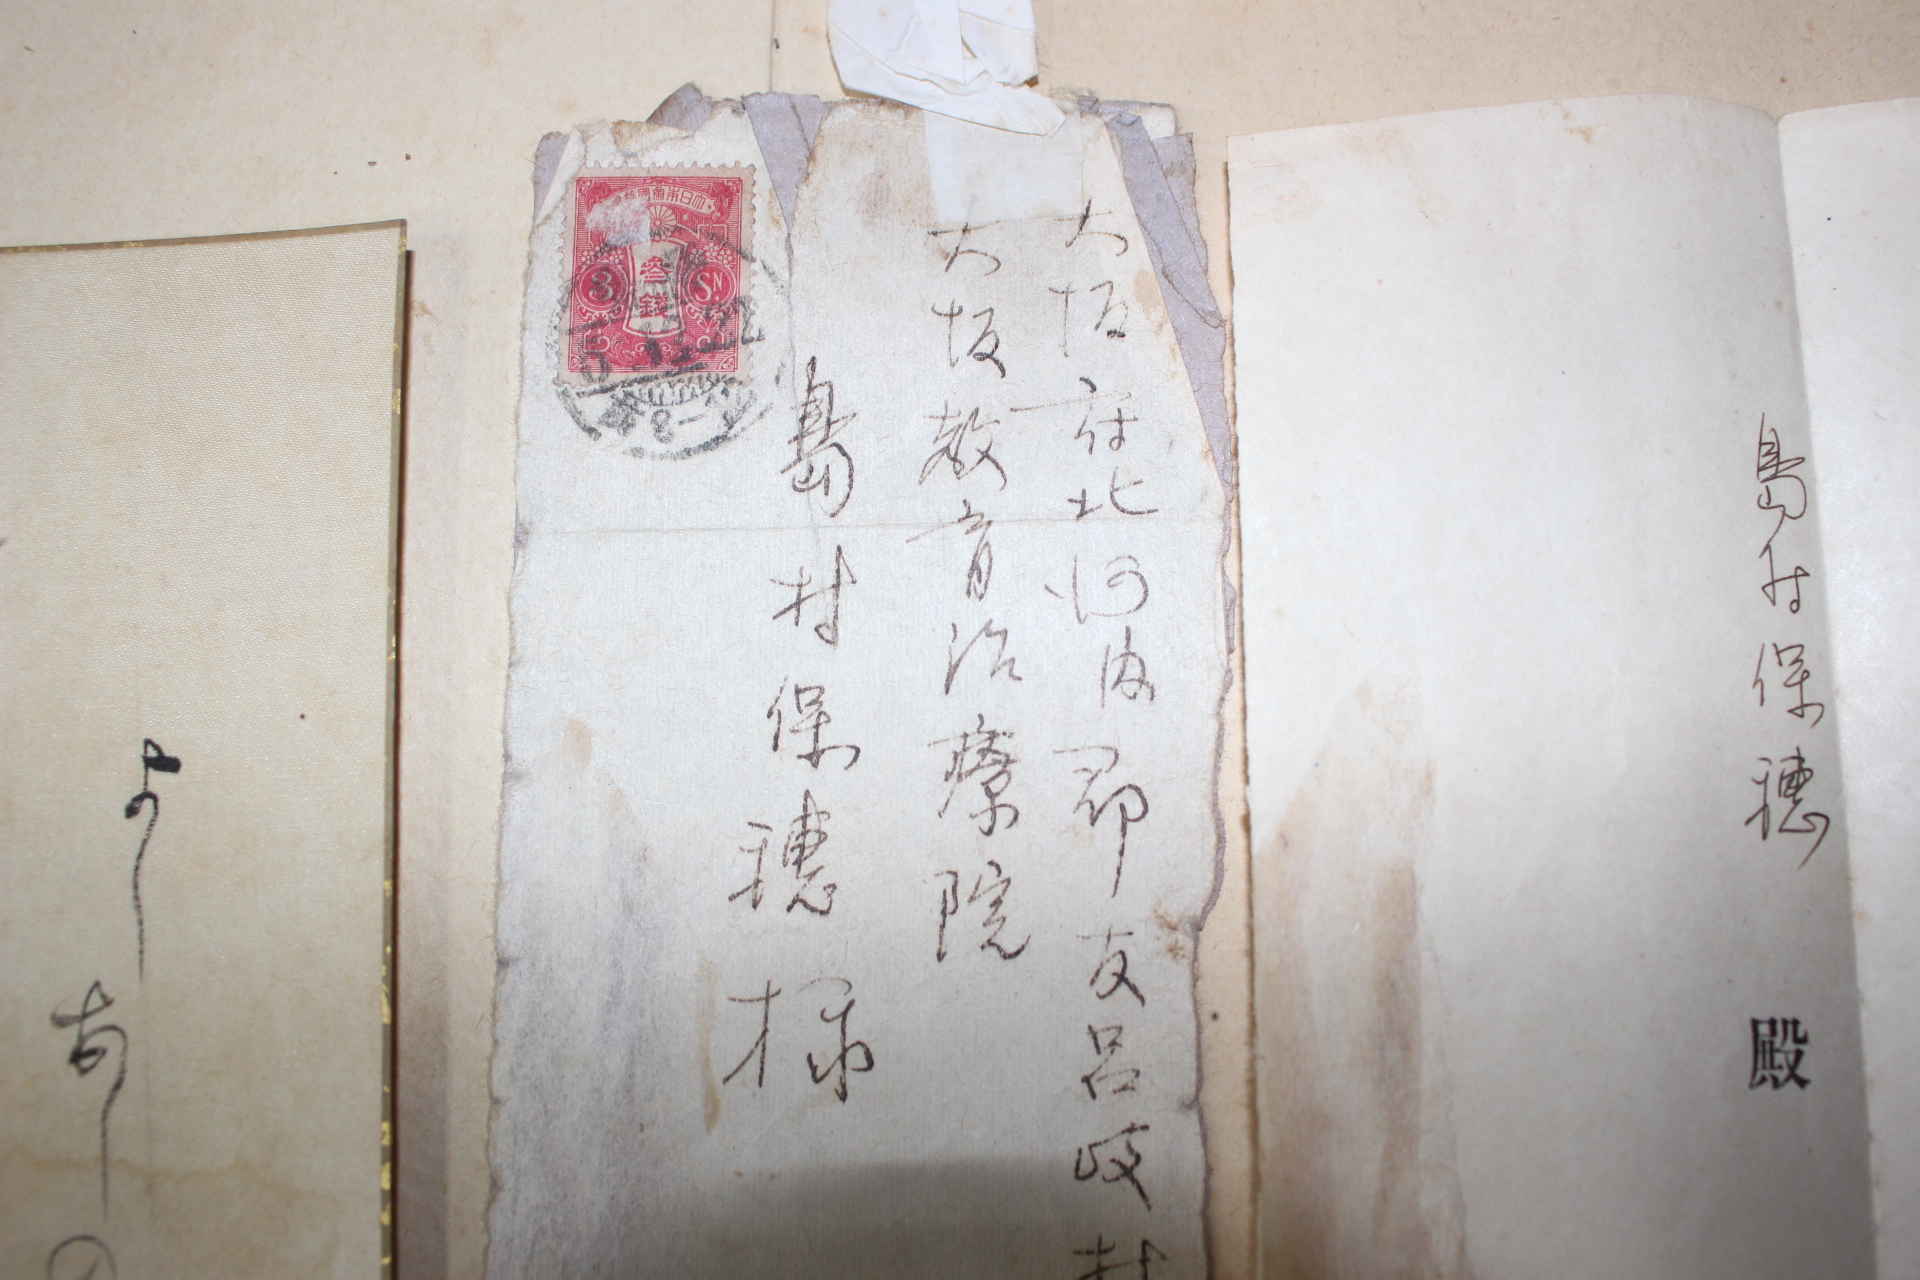 島村保穂 殿
大坂府北河内郡友呂岐村
大坂教育治療院
島村保穂様
大日本帝國郵便
參錢
3 SN
よ